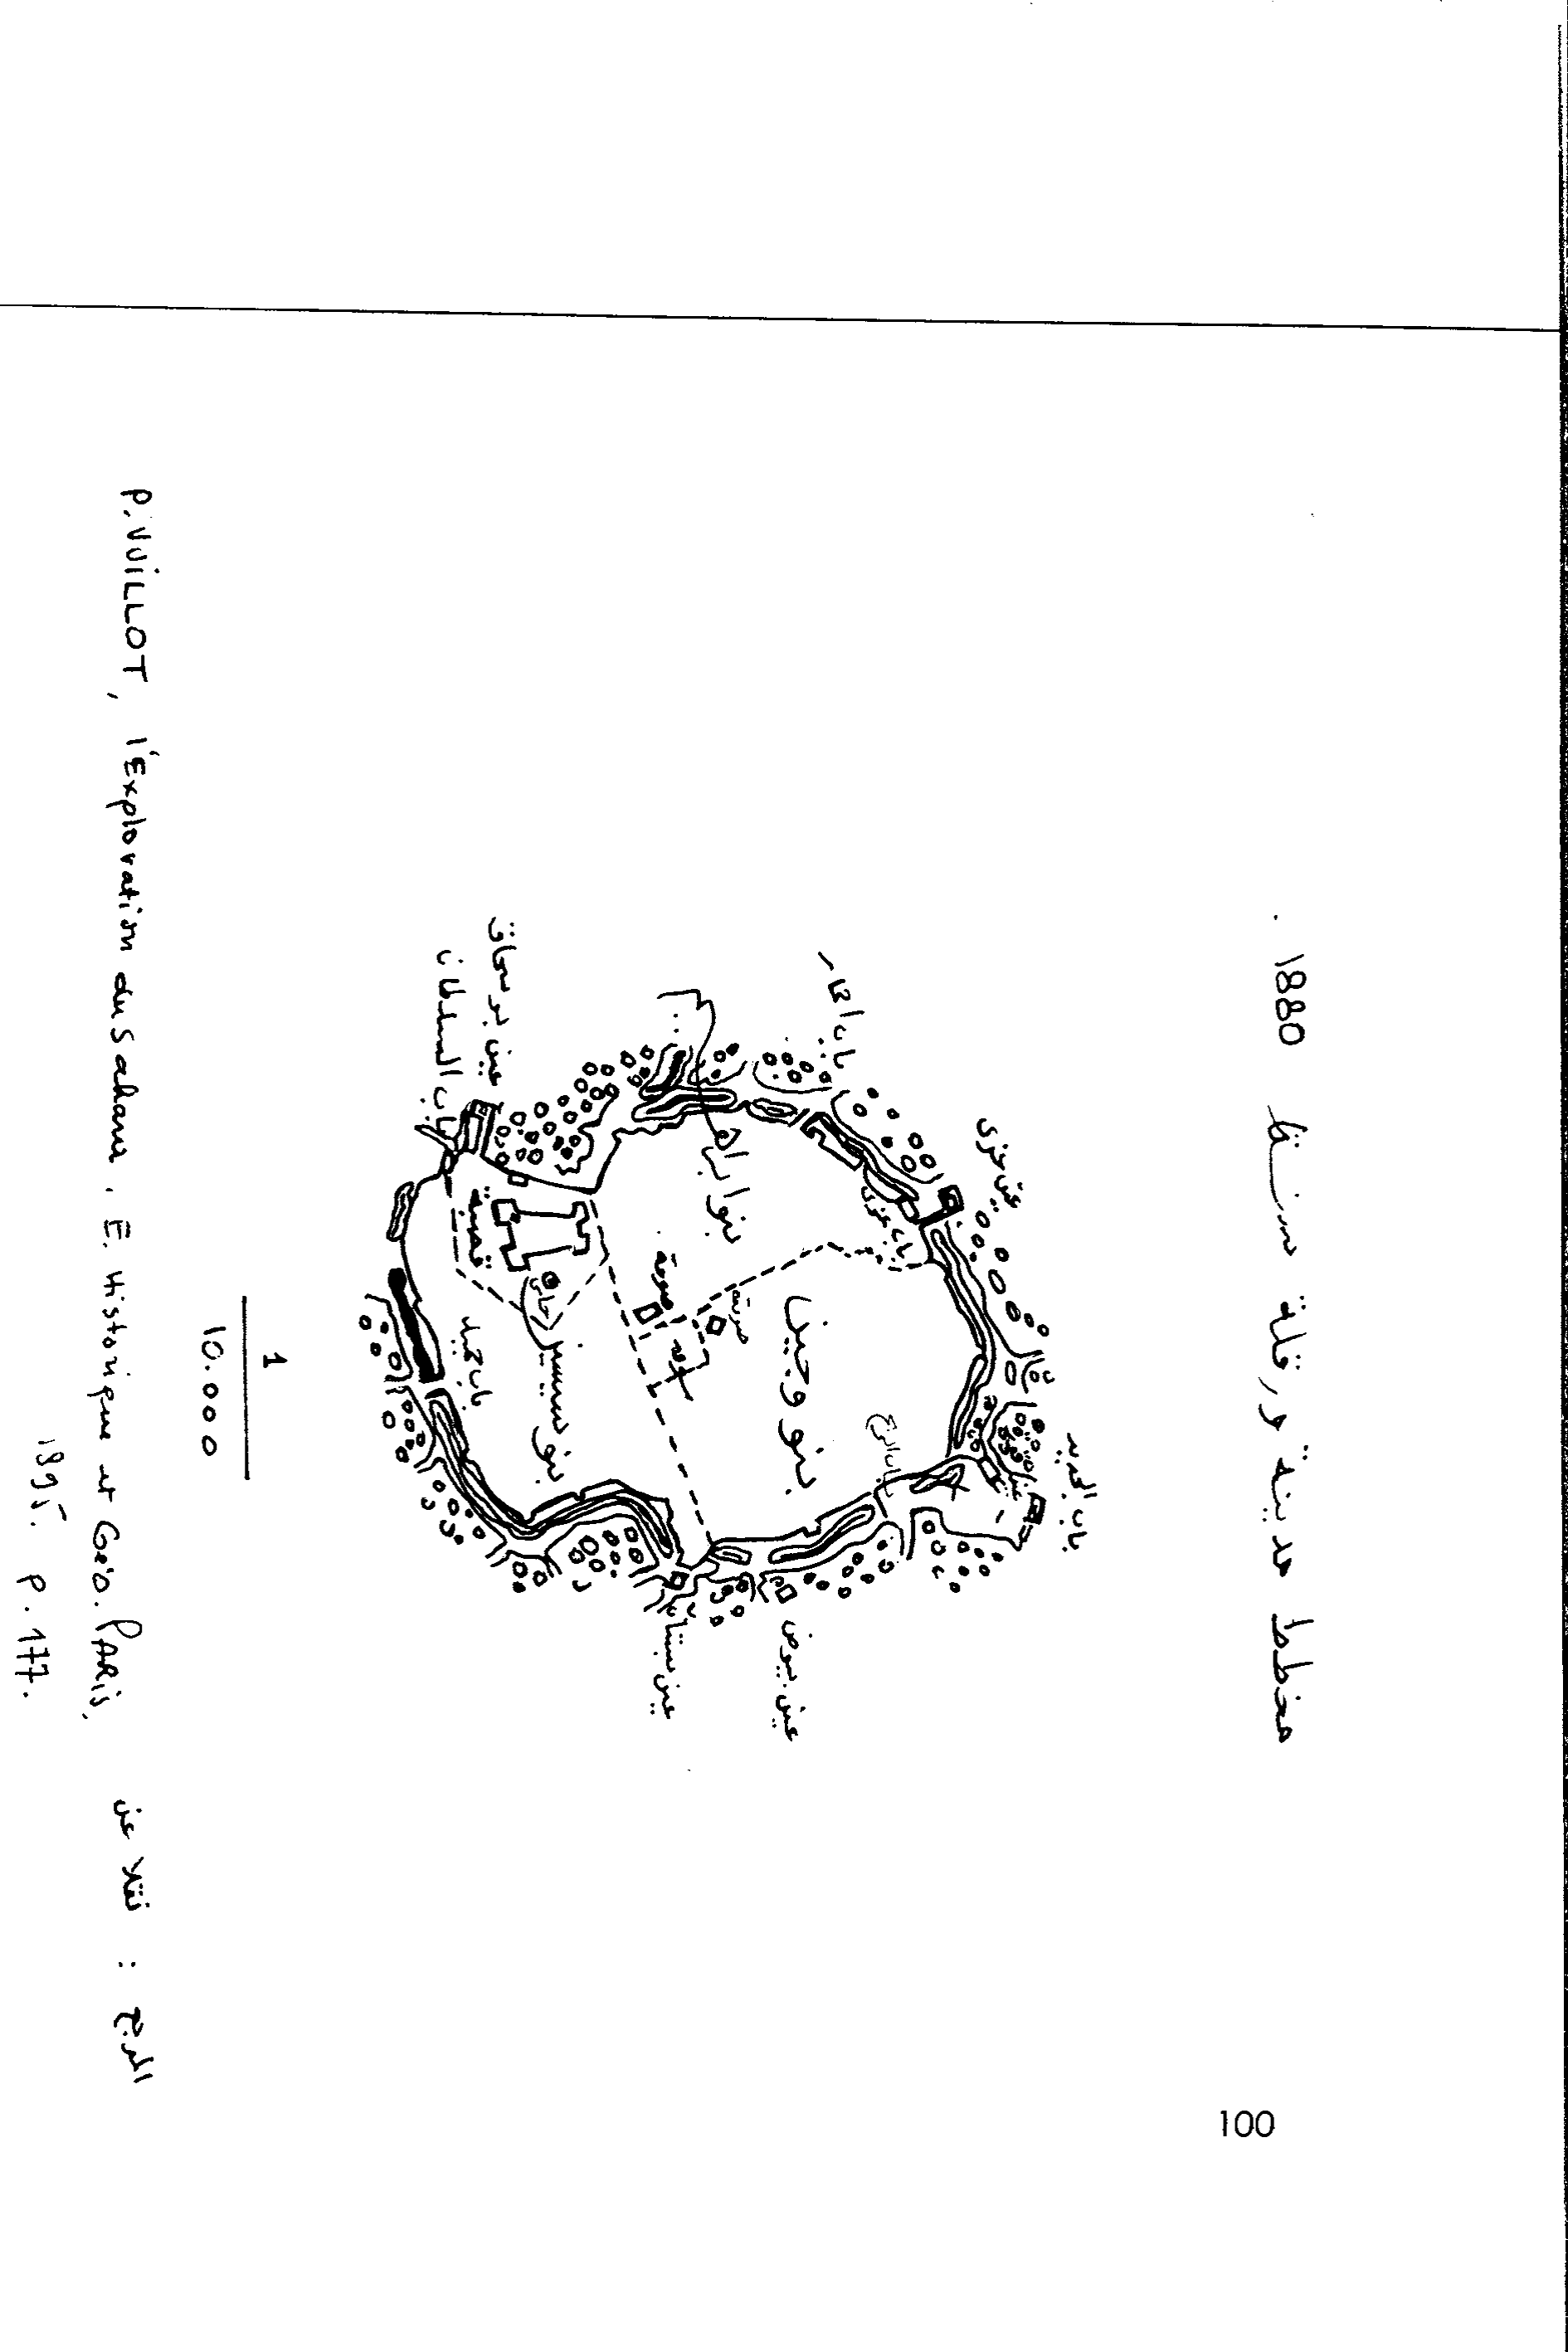 مخطط مدينة ورقلة سنة 1880 .
باب الجديد
عين جزى
باب عزى
باب احمار
عين بيوض
بنو وجين
بنو ابراهيم
صومعة
صومعة
سوق
عين سبتان
بنو سيسين
قصبة
باب حميد
عين بو سحاق
باب السلطان
1
10.000
المرجع : نقلا عن
P. VUILLOT, l'Exploration du Sahara. E. Historique et Géo. PARIS,
1895. P. 177.
100